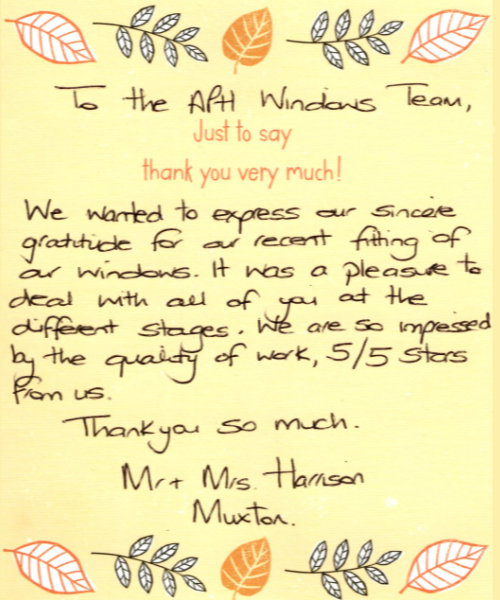 To the APH Windows Team,
Just to say
thank you very much!
We wanted to express our sincere
gratitude for our recent fitting of
our windows. It was a pleasure to
deal with all of you at the
different stages. We are so impressed
by the quality of work, 5/5 stars
from us.
Thank you so much.
Mr + Mrs. Harrison
Muxton.